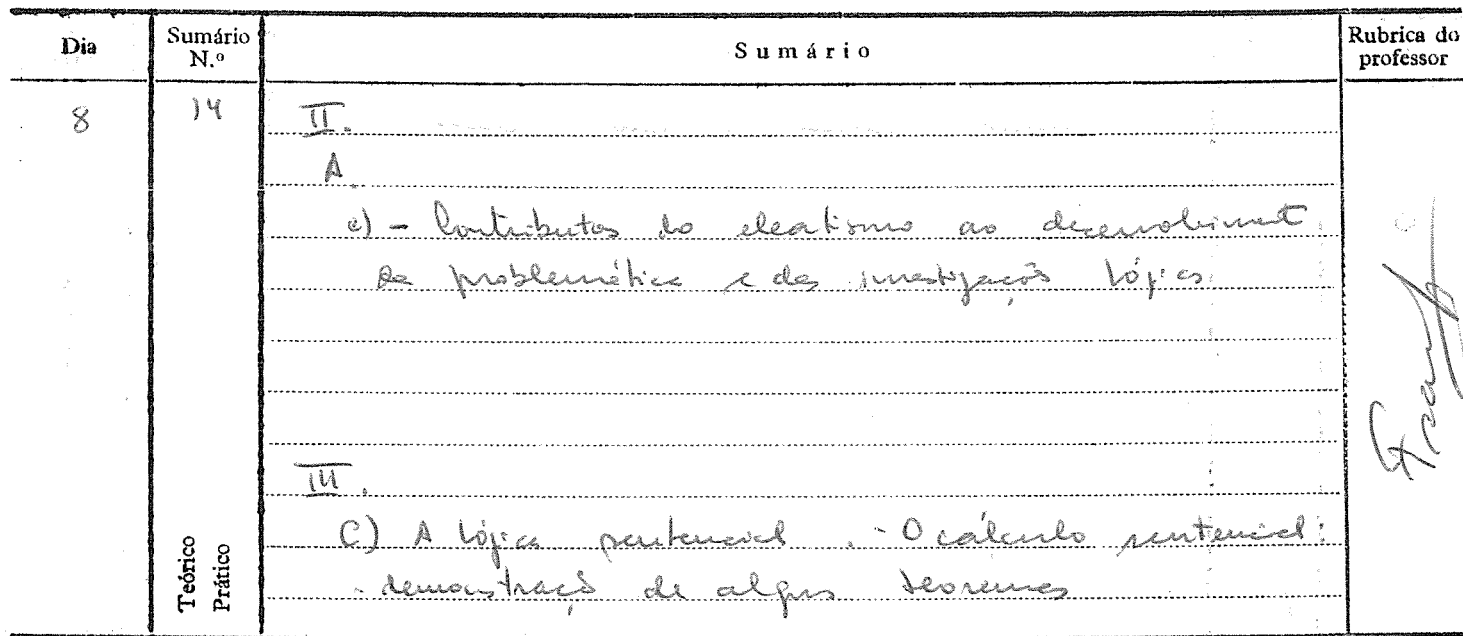 Dia
Sumário N.º
Sumário
Rubrica do professor
8
14
II.
A.
e) - Contributos do eleatismo ao desenvolviment
da problemática e das investigaçõs lógicas
III.
C) A lógica sentencial. - O cálculo sentencial:
- demonstraçã de alguns teoremas
Teórico
Prático